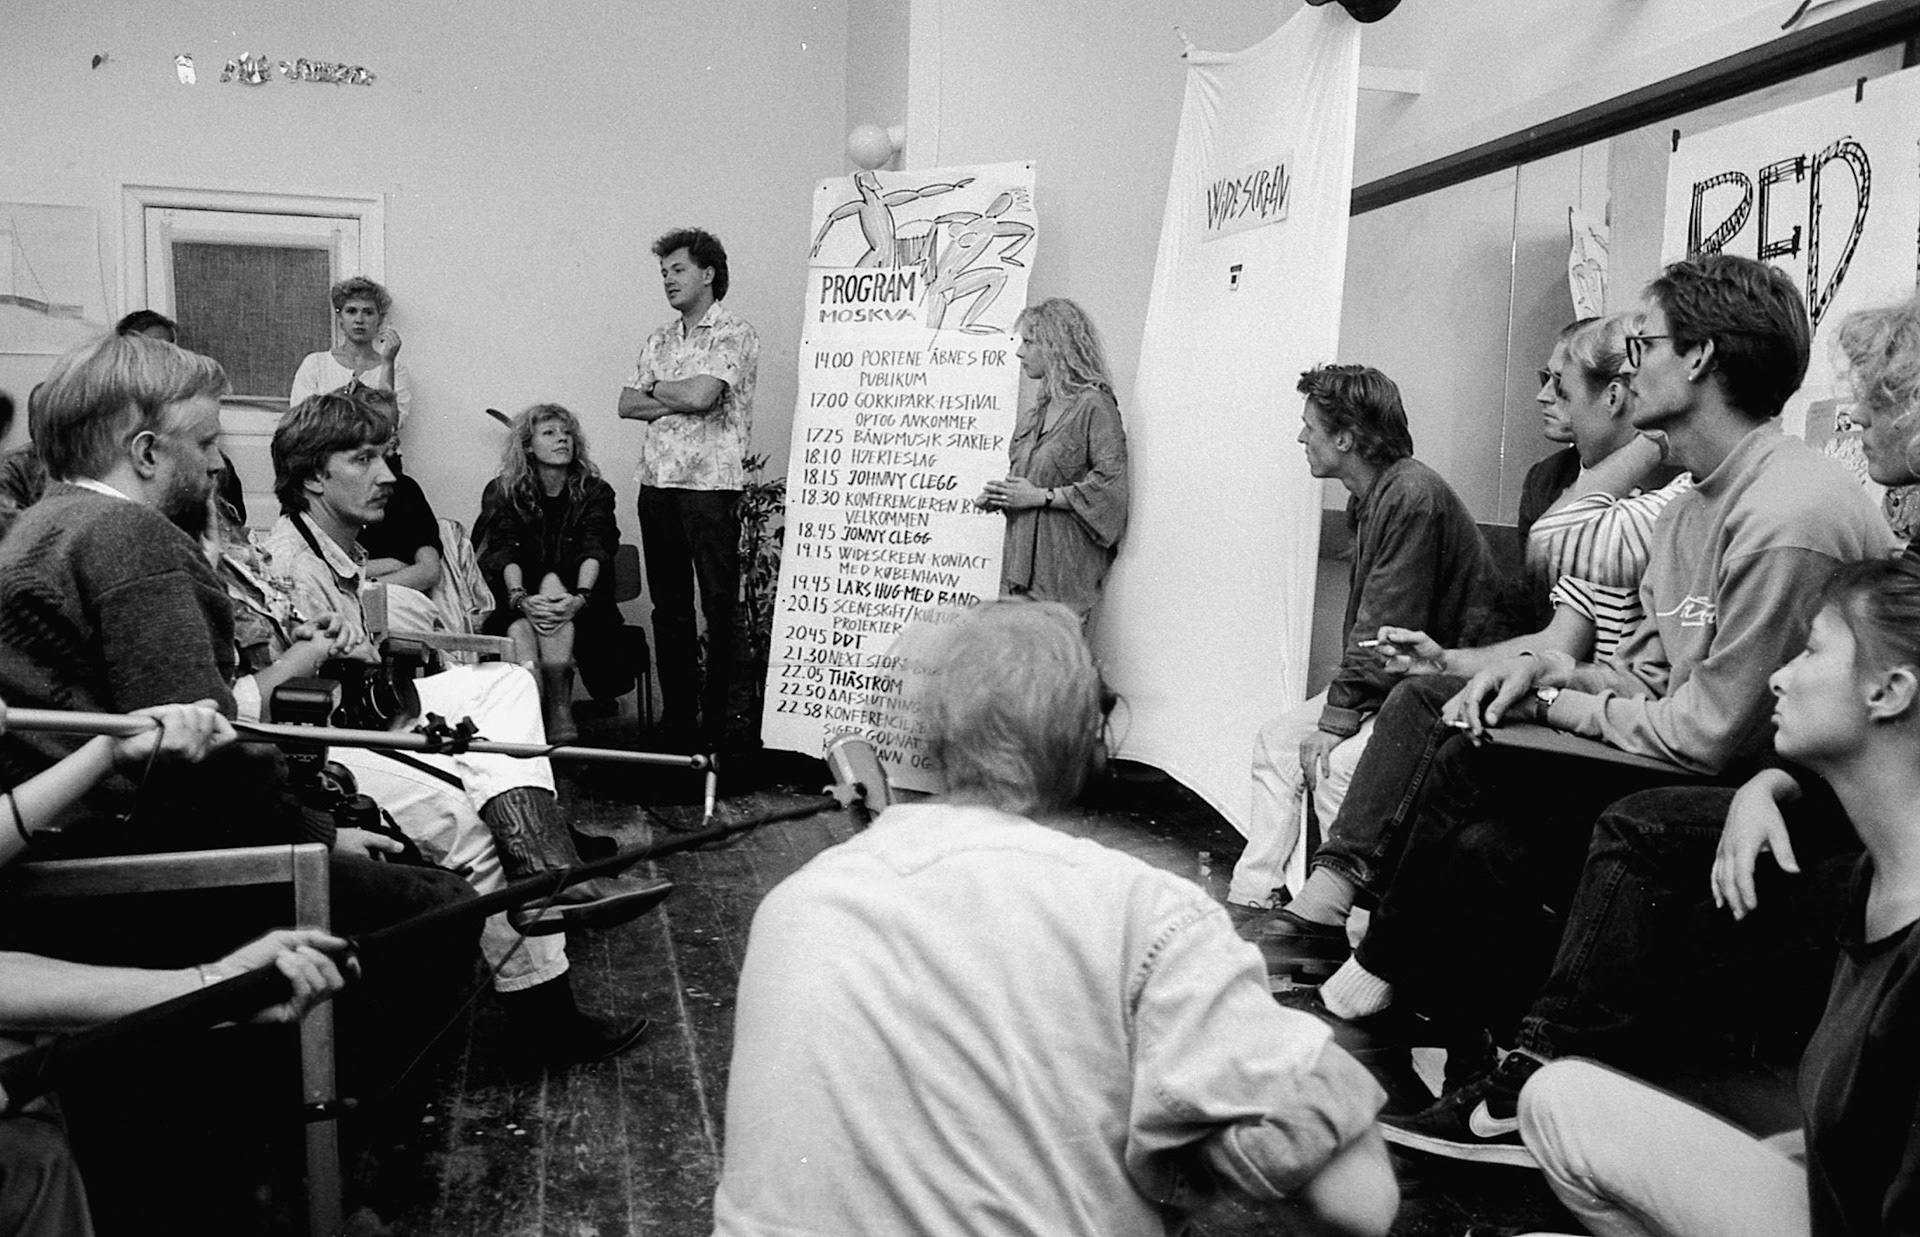 PROGRAM
MOSKVA
14.00 PORTENE ÅBNES FOR
PUBLIKUM
17.00 GORKIPARK-FESTIVAL
OPTOG ANKOMMER
17.25 BÅNDMUSIK STARTER
18.10 HJERTESLAG
18.15 JOHNNY CLEGG
18.30 KONFERENCIEREN
VELKOMMEN
18.45 JONNY CLEGG
19.15 WIDESCREEN-KONTACT
MED KØBENHAVN
19.45 LARS HUG MED BAND
20.15 SCENESKIFT/KULTUR
PROJEKTER
20.45 DDT
21.30 NEXT STOP
22.05 THÅSTRÖM
22.50 AAFSLUTNING
22.58
OG
WIDESCREEN
RED